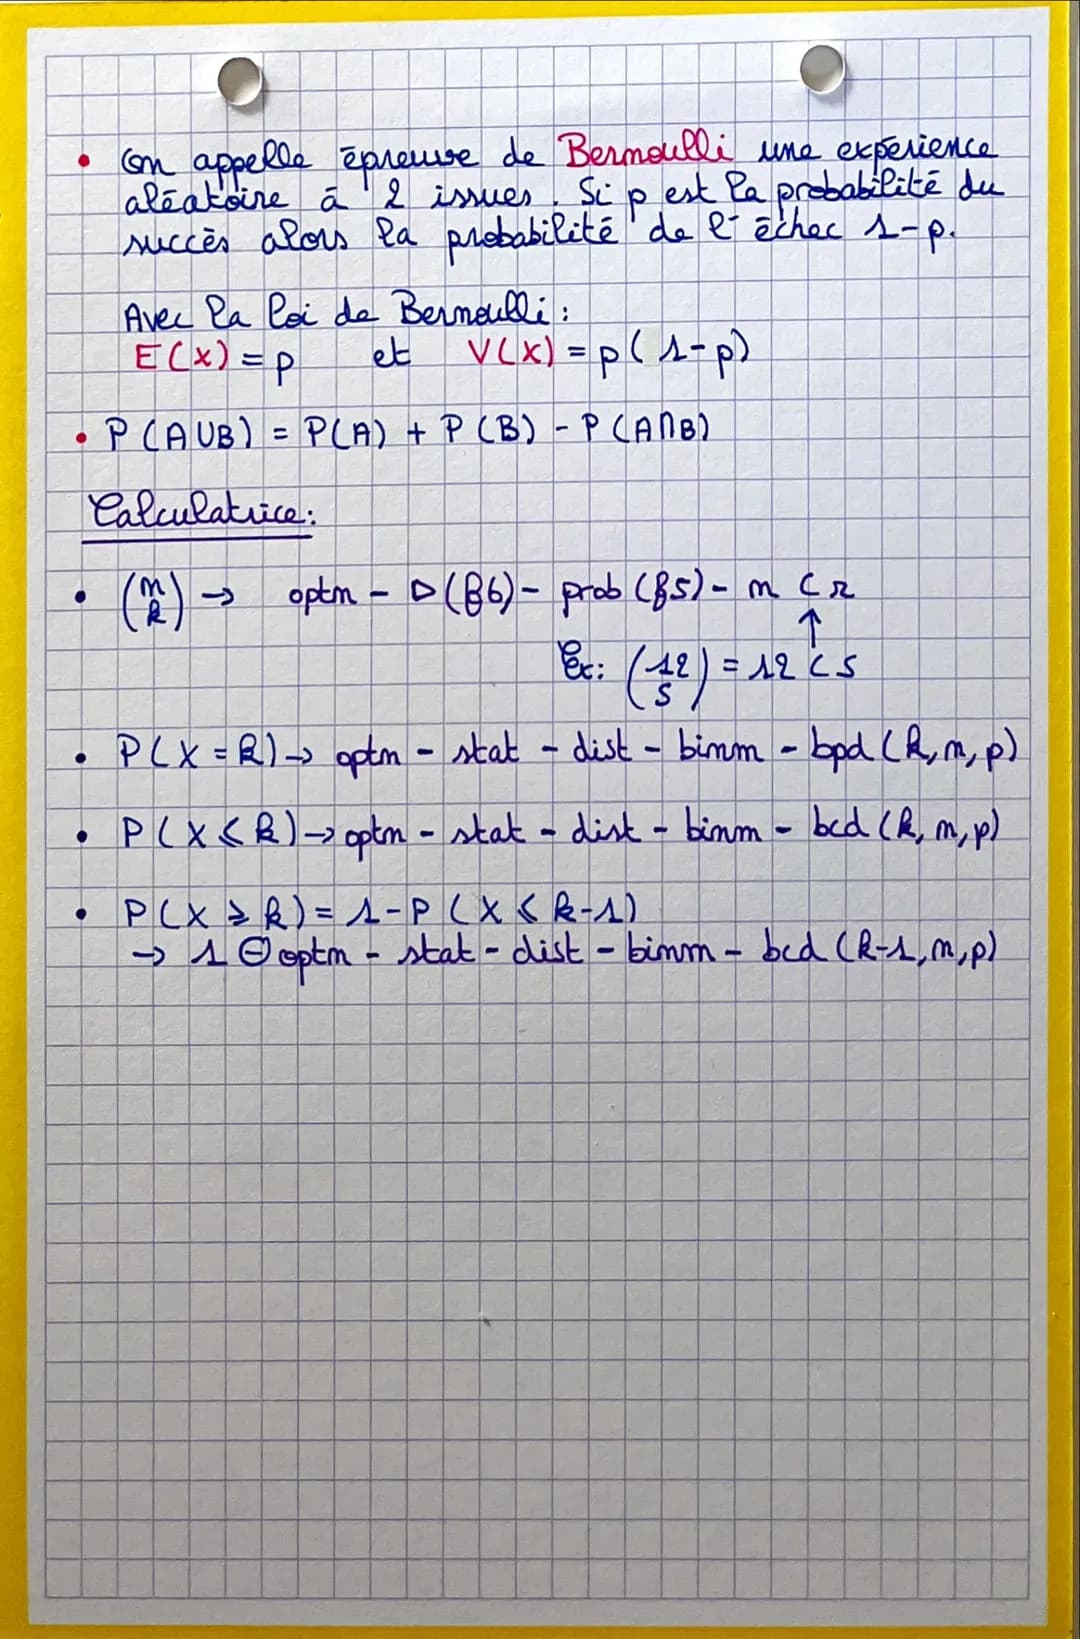 • On appelle épreuve de Bernoulli une expérience
aléatoire à 2 issues. Si p est la probabilité du
succès alors la probabilité de l'échec 1-p.
Avec la loi de Bernoulli :
E(X) = p et V(X) = p(1-p)
• P(A∪B) = P(A) + P(B) - P(A∩B)
Calculatrice:
• (n k) → optn - ▷ (f6) - prob (f5) - n C r
↑
Ex: (12 5) = 12 C 5
• P(X = k) → optn - stat - dist - binm - bpd (k, n, p)
• P(X ⩽ k) → optn - stat - dist - binm - bcd (k, n, p)
• P(X ⩾ k) = 1 - P(X ⩽ k-1)
→ 1 ⊖ optn - stat - dist - binm - bcd (k-1, n, p)